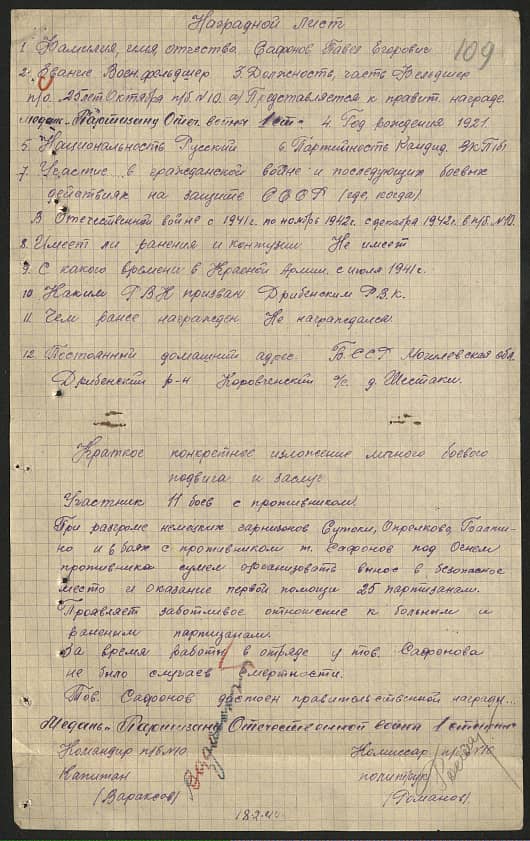 Наградной лист
109
1. Фамилия, имя, отчество Сафонов Павел Егорович
2. Звание Воен.фельдшер 3. Должность, часть Фельдшер
п/о. 25 лет Октября п/б. №10. а) Представляется к правит. награде
медаль „Партизану Отеч. войны 1 ст" 4. Год рождения 1921.
5. Национальность Русский 6. Партийность Кандид. ВКП(б)
7. Участие в гражданской войне и последующих боевых
действиях на защите СССР (где, когда)
В Отечественной войне с 1941г. по ноябрь 1942г. с декабря 1942г. в п/б. №10.
8. Имеет ли ранения и контузии Не имеет
9. С какого времени в Красной Армии. с июля 1941г.
10 Каким Р.В.К призван Дрибенским Р.В.К.
11. Чем ранее награжден Не награждался
12. Постоянный домашний адрес. БССР Могилевская обл.
Дрибенский р-н Коровченский с/с. д. Шестаки.
Краткое конкретное изложение личного боевого
подвига и заслуг
Участник 11 боев с противником.
При разгроме немецких гарнизонов Сутоки, Опрелково,
но и в боях с противником т. Сафонов под Огнем
противника сумел организовать вынос в безопасное
место и оказание первой помощи 25 партизанам.
Проявляет заботливое отношение к больным и
раненым партизанам.
За время работы в отряде у тов. Сафонова
не было случаев смертности.
Тов. Сафонов достоен правительственной награды...
Медаль „Партизану Отечественной война 1 степени
Командир п/б №10 Комиссар п/б №10
Капитан политрук
(Вараксов) (Романов).
18.2.44